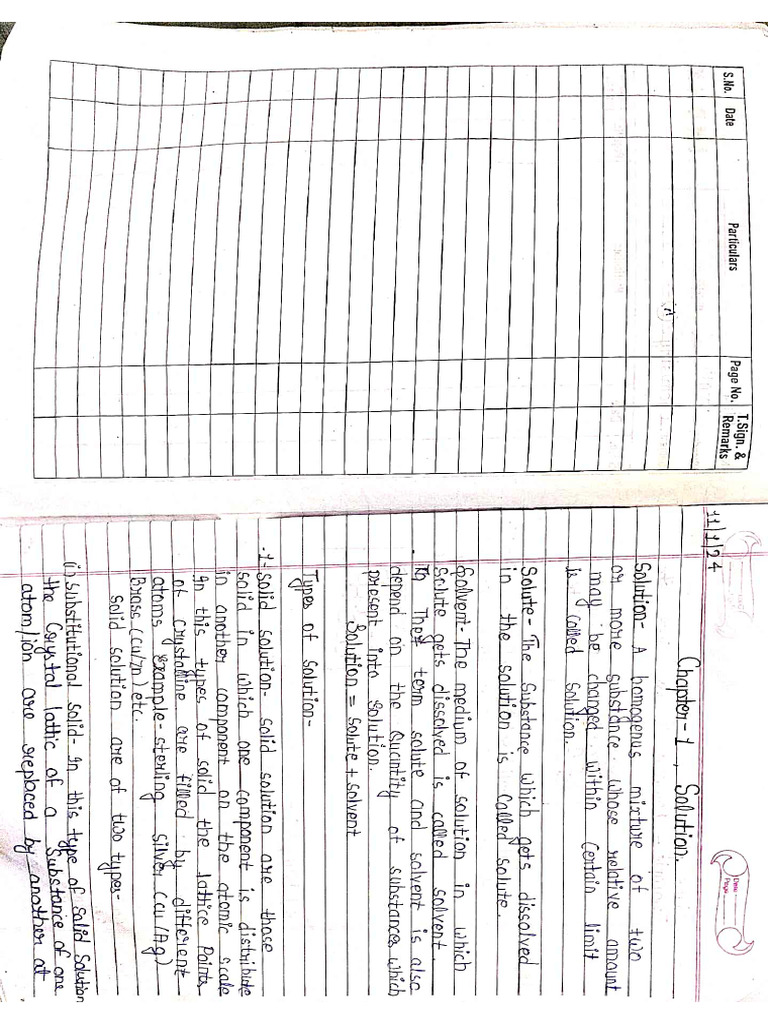 S.No. Date Particulars Page No. T.Sign. & Remarks
11/1/24
Date
Page
Chapter-1, Solution.
Solution- A homogenus mixture of two
or more substance whose relative amount
may be changed within certain limit
is called solution.
Solute- The Substance which gets dissolved
in the solution is called solute.
Solvent- The medium of solution in which
Solute gets dissolved is called solvent.
The term solute and solvent is also
depend on the Quantity of substances which
present into solution.
Solution = solute + solvent
Types of solution-
1- Solid solution- solid solution are those
solid in which one component is distribute
in another component on the atomic scale
In this types of solid the lattice Points
of crystalline are filled by different
atoms Example- sterling silver, (cu/Ag)
Brass (cu/zn) etc.
solid solution are of two types-
(i) Substitutional solid- In this type of Solid Solution
the Crystal lattic of a Substance of one
atom/ion are replaced by another at